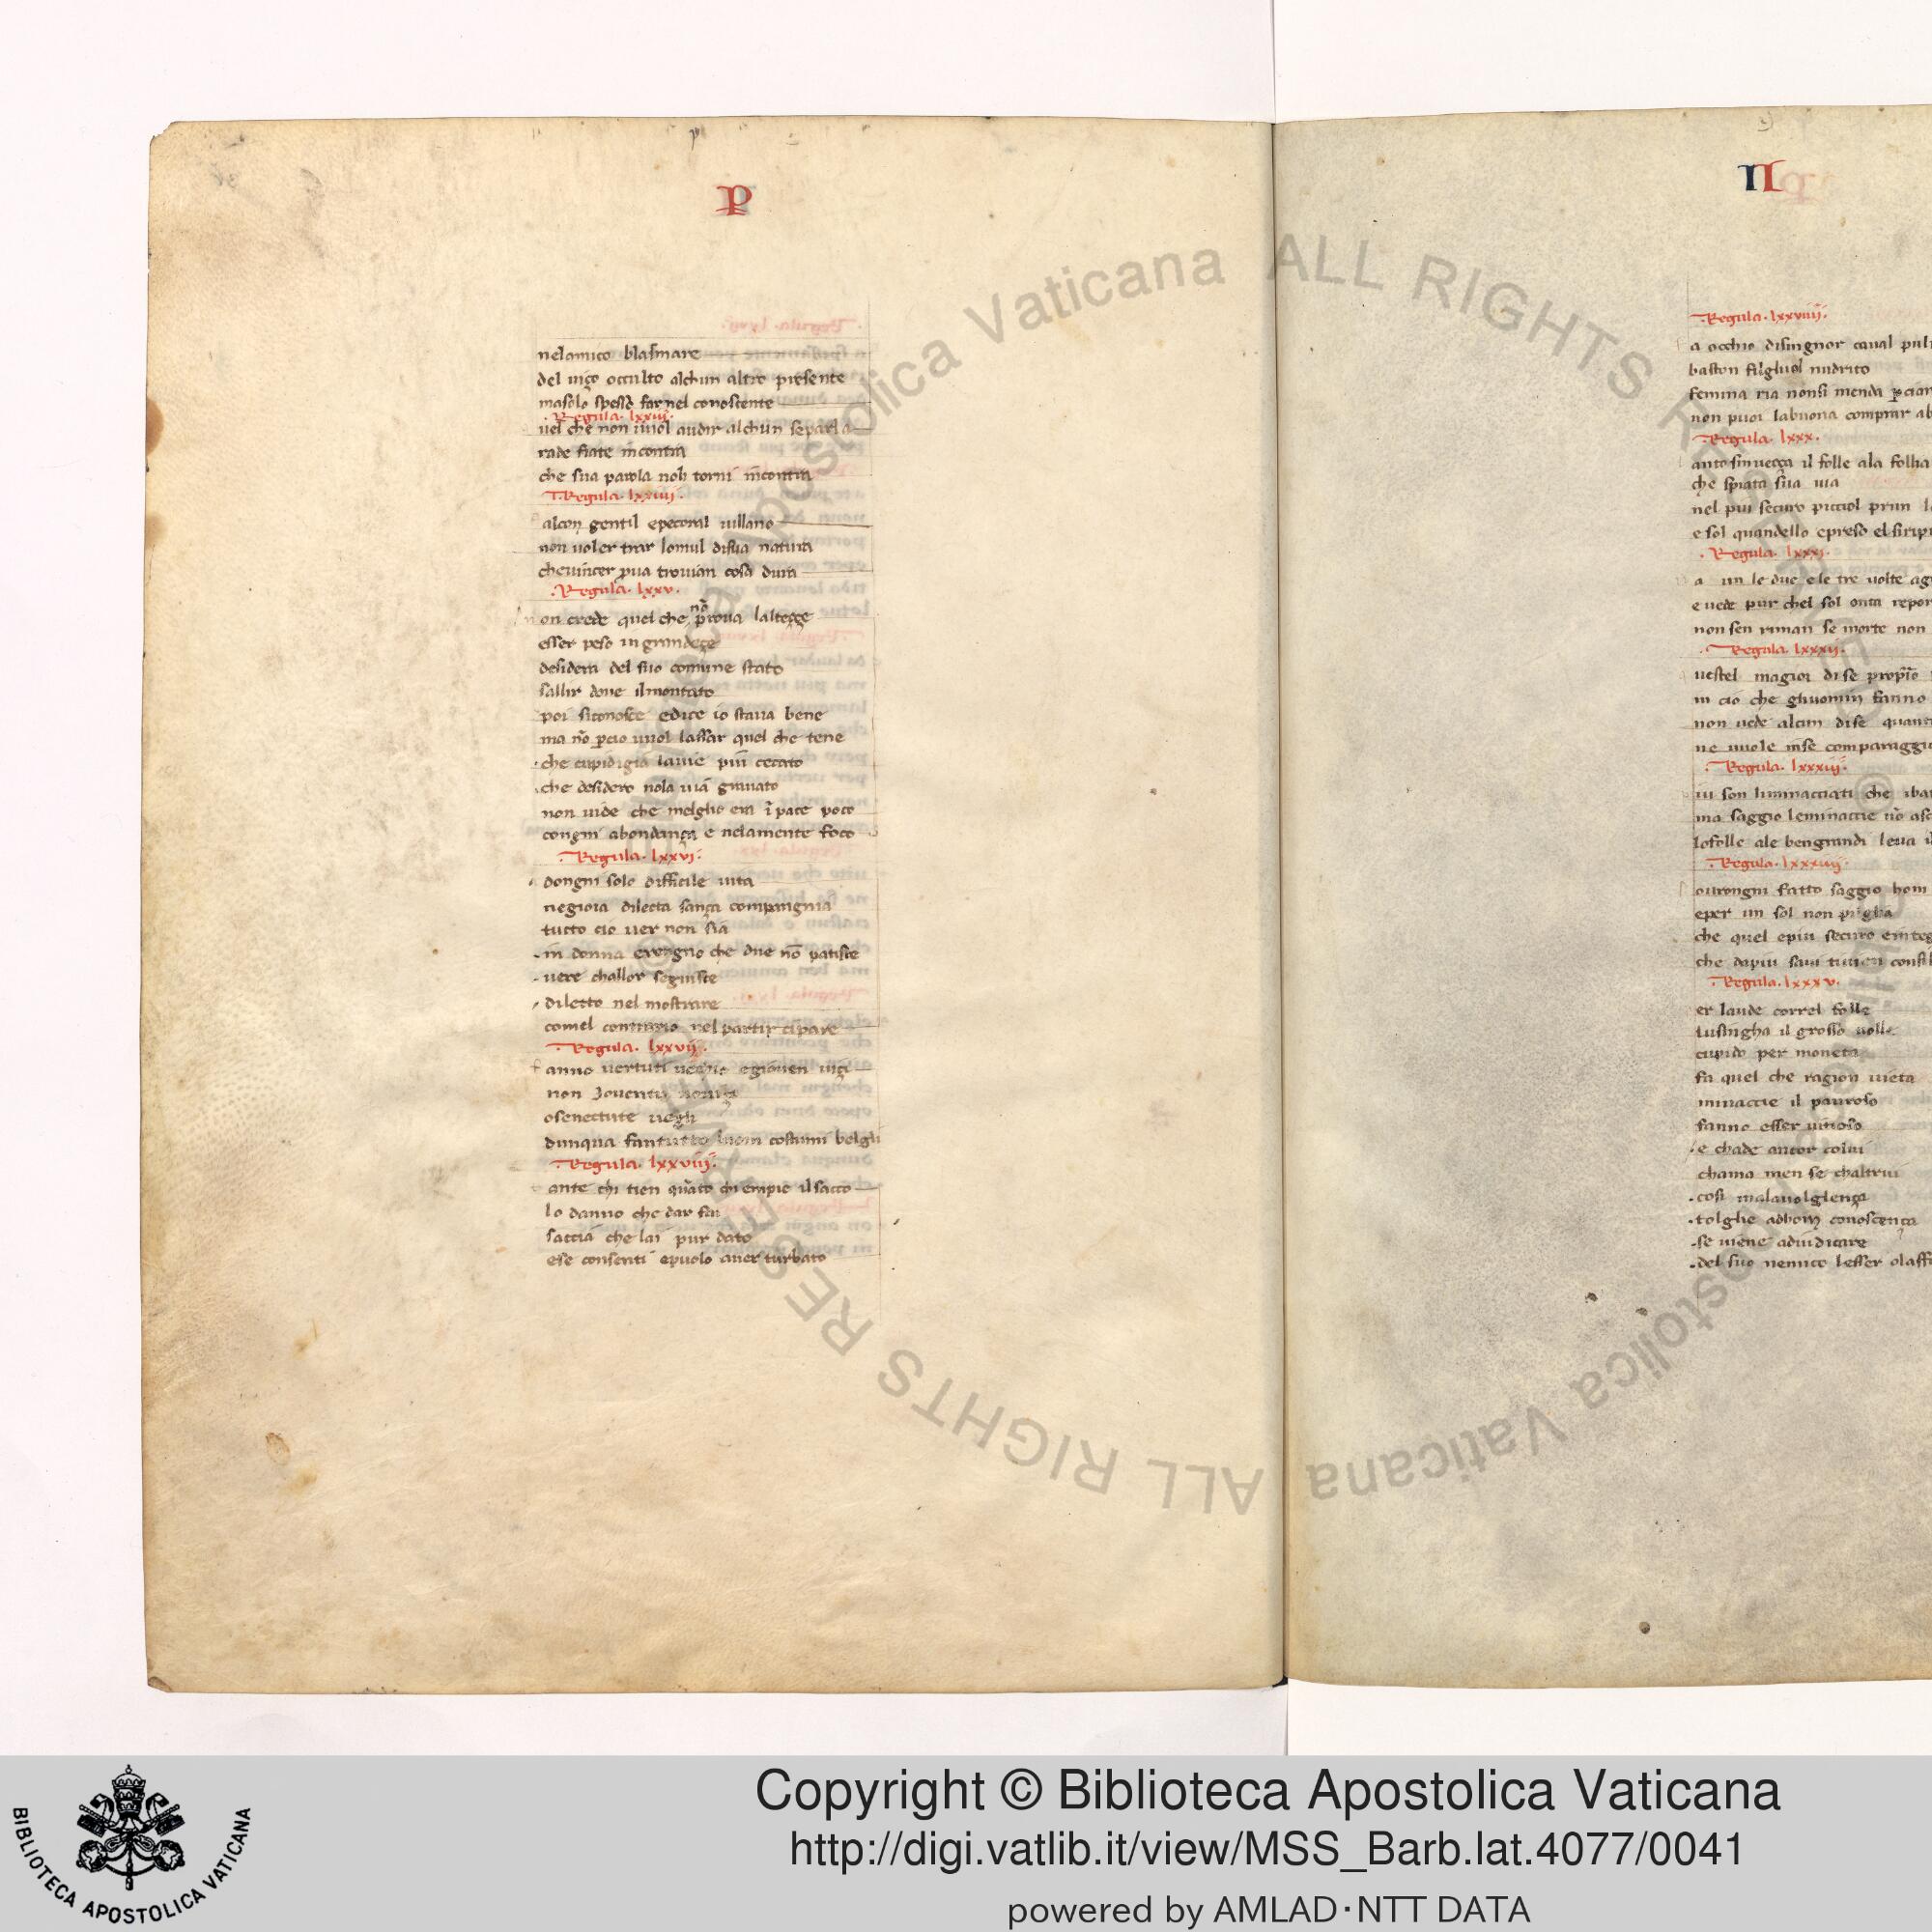 P
nel amico blasmare
del uiço occulto alchun altro presente
ma solo spesso far nel conoscente
.Regula. lxxiii.
uel che non uuol audir alchun se parla
rade fiate incontra
che sua parola non torni incontra
.Regula. lxxiiii.
alcon gentil epecoral uillano
non uoler trar lomul disua natura
che uincer pua trouian cosa dura
.Regula. lxxv.
on crede quel che nõ proua lalteçe
esser peso in grandeçe
desidera del suo comune stato
sallir doue il montato
poi siconosce e dice io staua bene
ma nõ pcio uuol lassar quel che tene
che cupidigia lauie piu cecato
che desidero nola uia grauato
non uide che melglio era ĩ pace poco
congni abondança e nelamente foco
.Regula. lxxvi.
dongni solo difficile uita
negioia dilecta sança compangnia
tutto cio uer non sia
in donna eregno che due nõ patisce
uere challor seguisce
diletto nel mostrare
comel contrario nel partir cipare
.Regula. lxxvii.
anno uertuti uechio egiouen uiçi
non Jouentu
osenectute uegli
dunqua fan tutto luom costumi belgli
.Regula. lxxviii.
ante chi tien quãto chi empie il sacco
lo danno che dar fai
saccia che lai pur dato
ese consenti epuolo auer turbato
II
.Regula. lxxviiii.
a occhio disingnor caual
baston filgluol nudrito
femina ria nonsi menda
non puoi labuona comprar
.Regula. lxxx.
anto sinueçça il folle ala folia
che spiata sua uia
nel piu securo picciol prun
e sol quandello epreso el siripi
.Regula. lxxxi.
a un le due ele tre uolte
e uede pur chel sol onta
non sen riman se morte non
.Regula. lxxxii.
uestel magior dise proprio
in cio che gluomin fanno
non uede alcun dise
ne uuole inse comparaggio
.Regula. lxxxiii.
iu son liminacciati che
ma saggio leminaccie nõ
lofolle ale bengrandi leua
.Regula. lxxxiiii.
ourongni fatto saggio hom
eper un sol non piglia
che quel epiu securo
che dapiu saui tutien
.Regula. lxxxv.
er laude correl folle
lusingha il grosso uolle
cupido per moneta
fa quel che ragion uieta
minaccie il pauroso
fanno esser uitioso
e chade ancor colui
chama men se chaltrui
cosi malauolglença
tolghe adhom conoscença
se uiene aduidicare
del suo nemico lesser
© Biblioteca Apostolica Vaticana ALL RIGHTS RESERVED
© Biblioteca Apostolica Vaticana ALL RIGHTS RESERVED
BIBLIOTECA APOSTOLICA VATICANA
Copyright © Biblioteca Apostolica Vaticana
http://digi.vatlib.it/view/MSS_Barb.lat.4077/0041
powered by AMLAD·NTT DATA